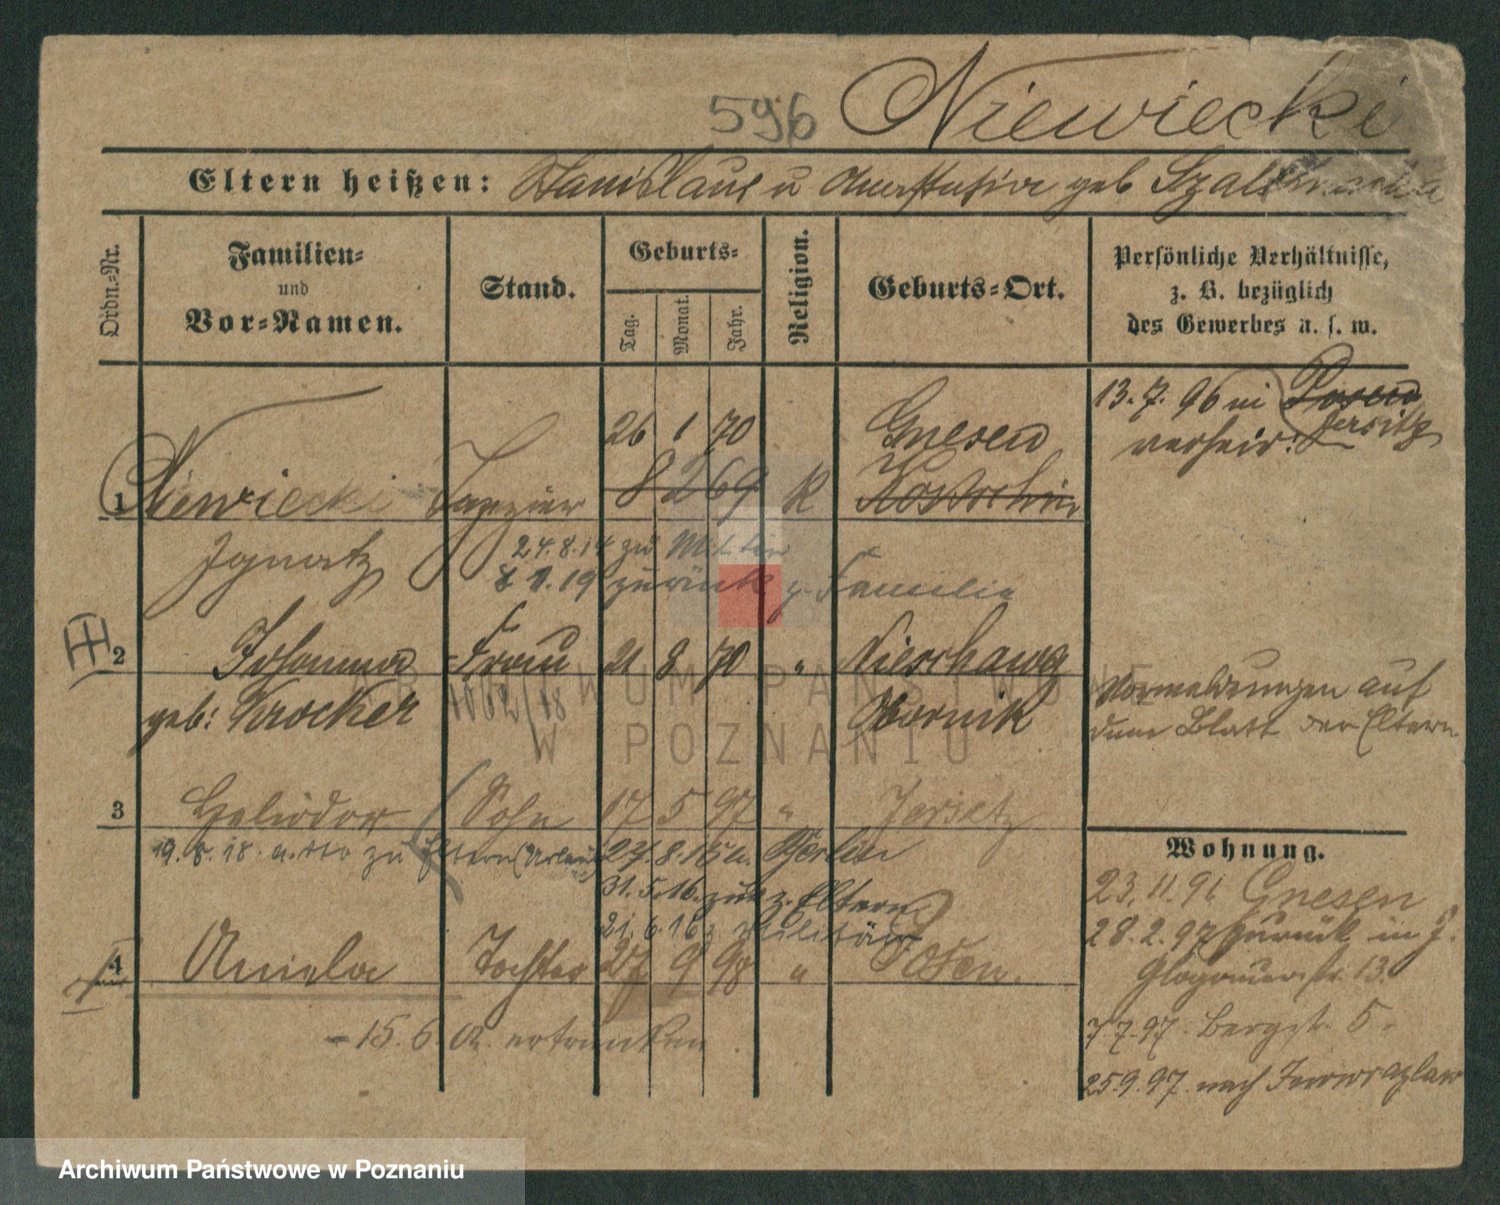 596 Niewiecki
Eltern heißen: Stanislaus u Anastasia geb
Ordn.-Nr.
Familien-
und
Vor-Namen.
Stand.
Geburts-
Tag.
Monat.
Jahr.
Religion.
Geburts-Ort.
Persönliche Verhältnisse,
z. B. bezüglich
des Gewerbes u. s. w.
13. 7. 96 in Posen
Jersitz
verheir:
26 1 70 Gnesen
1 Niewiecki Tapezier 8 2 69 R Kostschin
Ignatz
24.8.14 zu Militär
19 zurück z. Familie
2 Johanna Frau 21 8 70 " 
geb: Krocker 1062/18 Obornik
Vormeldungen auf
dem Blatt der Eltern
3 Heliodor Sohn 17 5 97 " Jersitz
19. 8. 18. zu Eltern (Urlaub) 27. 8. 15 a. Berlin
31. 5. 16. zur. z. Eltern
21. 6. 16 z Militär
4 Aniela Tochter 27 9 98 " Posen.
- 15. 6. 02. ertrunken
Wohnung.
23. 11. 96 Gnesen
28. 2. 97 zurück in J.
Glogauerstr. 13.
7 7. 97. Bergstr. 5.
25. 9. 97. nach Inowrazlaw
ARCHIWUM PAŃSTWOWE
W POZNANIU
Archiwum Państwowe w Poznaniu